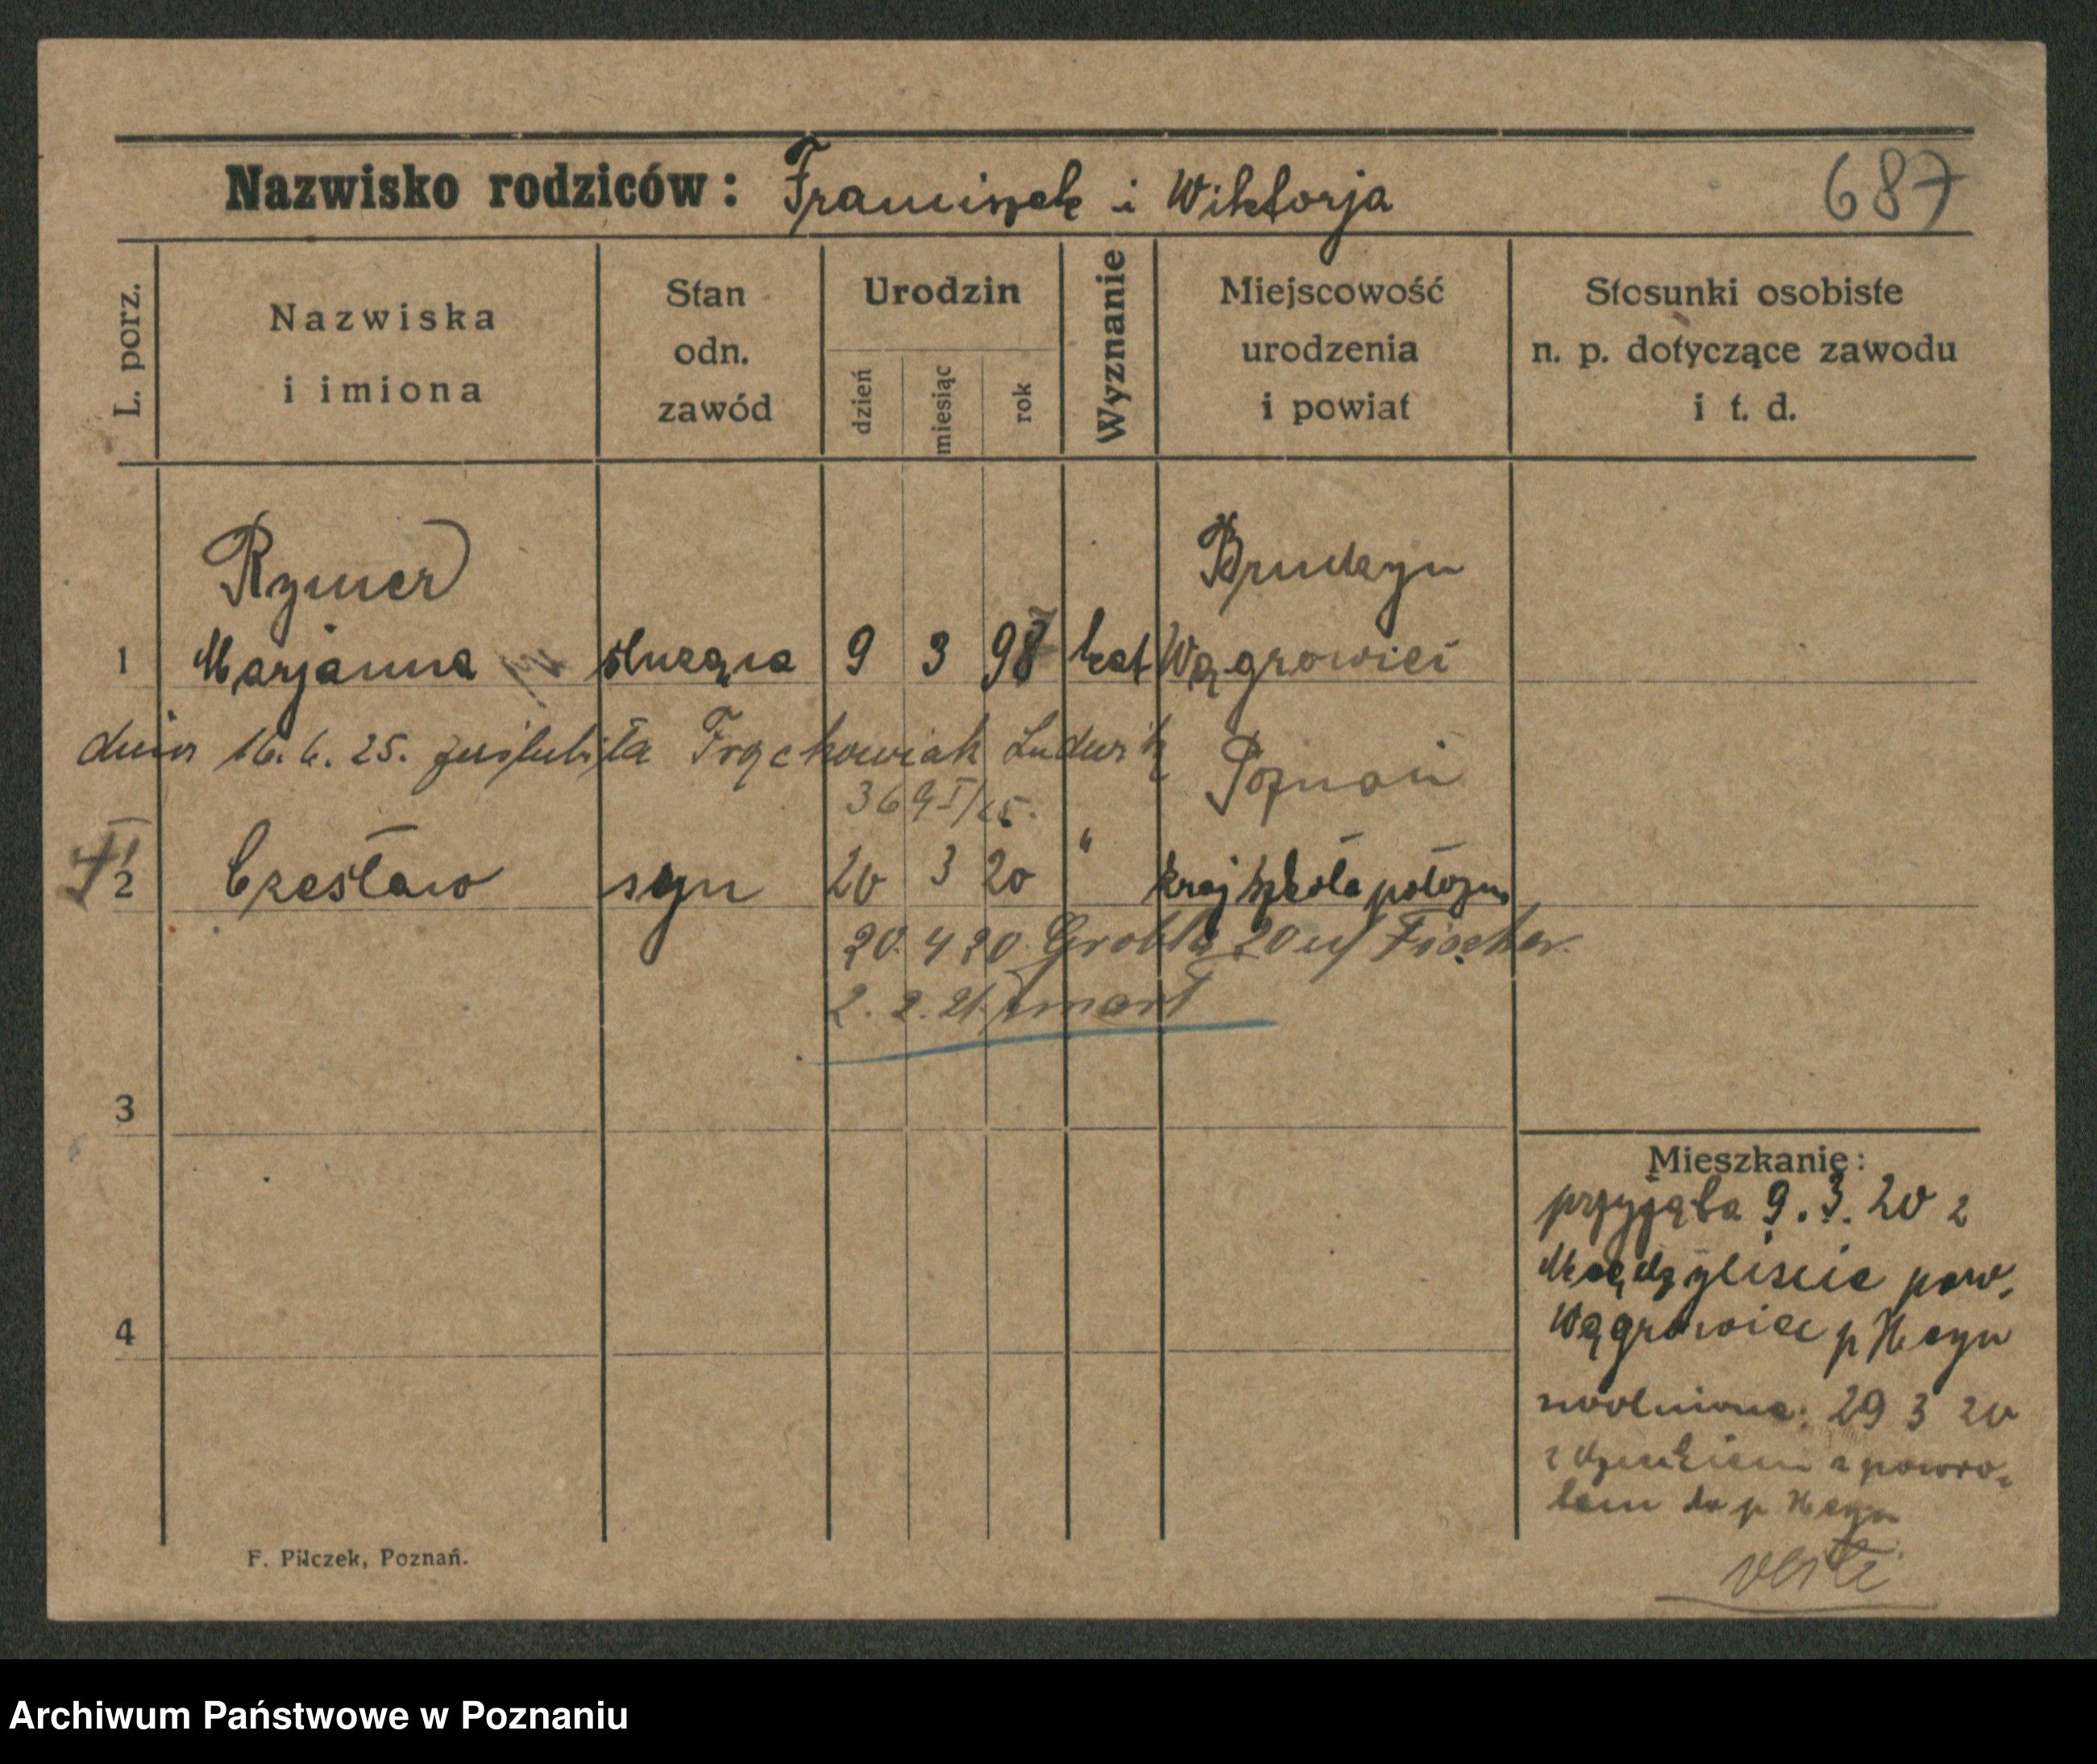 Nazwisko rodziców: Franciszek i Wiktorja 687
L. porz.
Nazwiska
i imiona
Stan
odn.
zawód
Urodzin
dzień
miesiąc
rok
Wyznanie
Miejscowość
urodzenia
i powiat
Stosunki osobiste
n. p. dotyczące zawodu
i t. d.
Rymer Brudzyn
1 Marjanna służąca 9 3 98 kat Wągrowiec
dnia 16. 6. 25. zaślubiła Frąckowiak Ludwik
369 I/25. Poznań
2 Czesław syn 20 3 20 " kraj szkoła położn
20. 4 20 Grobla 20 u/ Fischer.
2. 2. 21. zmarł
3
Mieszkanie:
przyjęta 9. 3. 20 z
pow.
4
Wągrowiec p Heyn
zwolniona: 29 3 20
z dzieckiem z powro-
tem do p Heyn
F. Pilczek, Poznań.
Archiwum Państwowe w Poznaniu